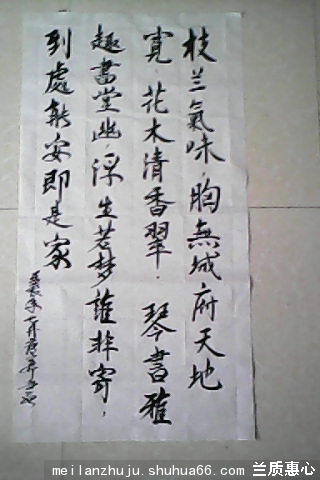 枝兰氣味，胸無城府天地
寛，花木清香翠，琴書雅
趣書堂幽，浮生若梦誰非寄，
到處能安即是家
meilanzhuju.shuhua66.com 兰质惠心